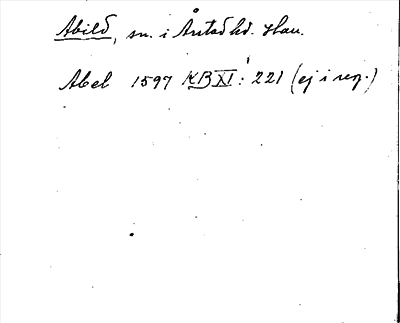 Abild, sn. i Årstad hd. Han.
Abel 1597 KB XI: 221 (ej i reg.)